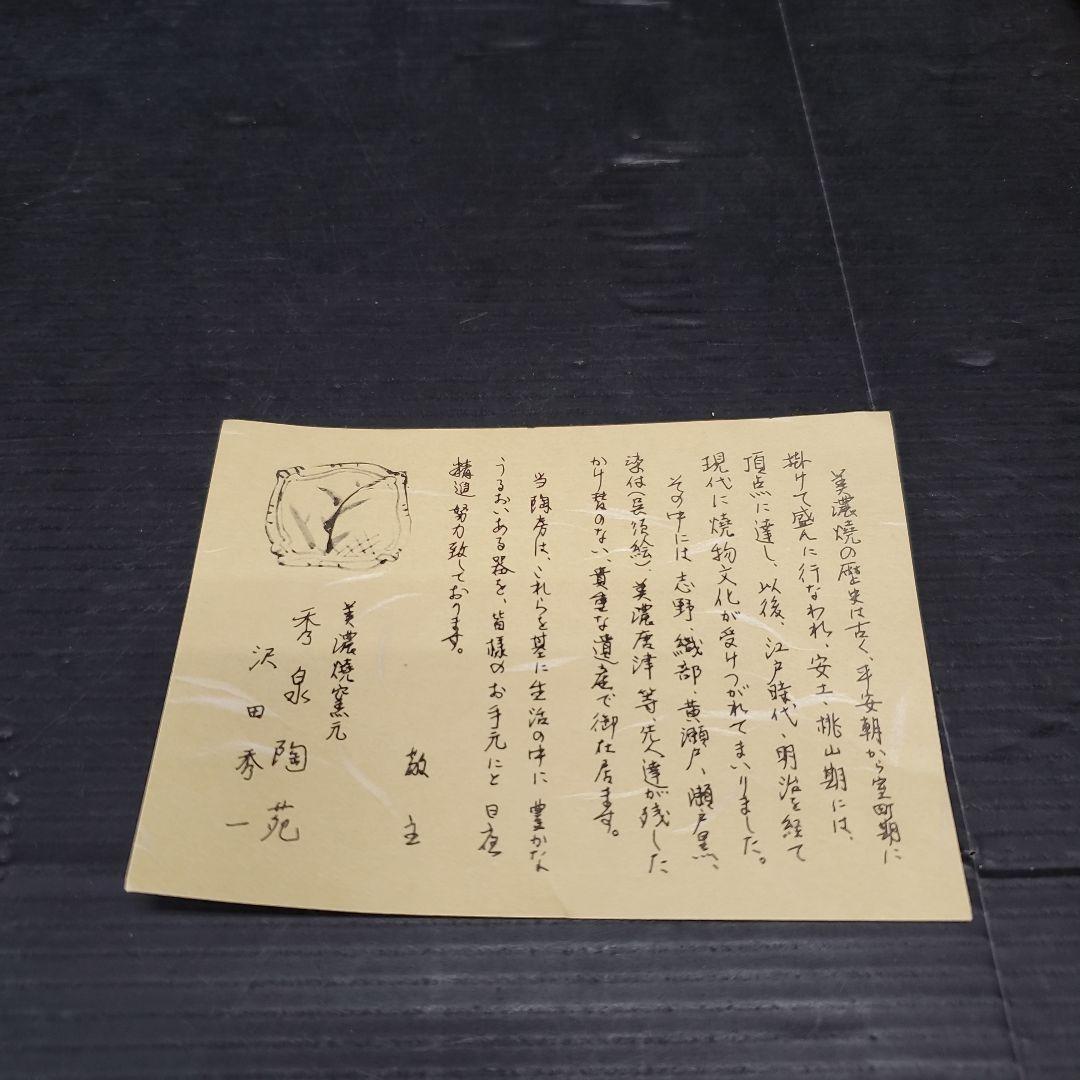 美濃焼の歴史は古く、平安朝から室町期に
掛けて盛んに行なわれ、安土、桃山期には、
頂点に達し、以後、江戸時代、明治を経て
現代に焼物文化が受けつがれてまいりました。
その中には志野、織部、黄瀬戸、瀬戸黒、
染付(呉須絵)美濃唐津等、先人達が残した
かけ替のない、貴重な遺産で御仕居ます。
当陶房は、これらを基に生活の中に豊かな
うるおいある器を、皆様のお手元にと日夜
精進努力致しております。
敬主
美濃焼窯元
秀泉陶苑
沢田秀一